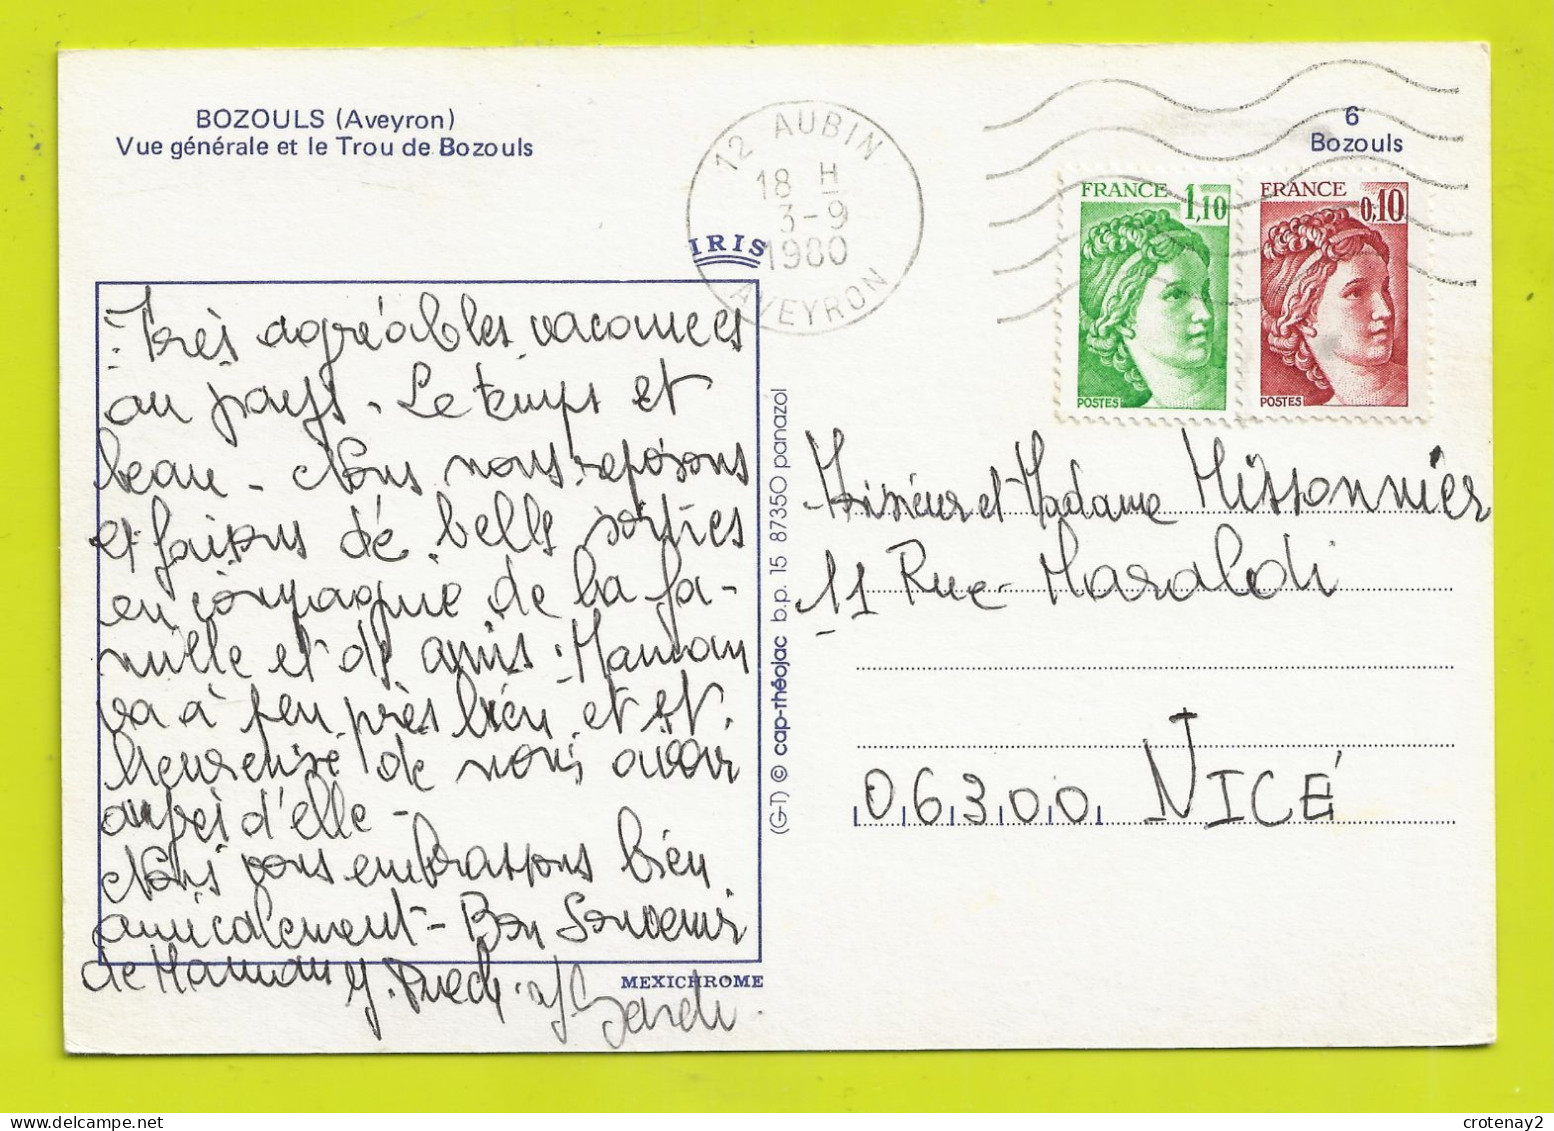 BOZOULS (Aveyron)
Vue générale et le Trou de Bozouls
12 AUBIN
18 H
3-9
1980
AVEYRON
IRIS
6
Bozouls
FRANCE 1,10
POSTES
FRANCE 0,10
POSTES
Très agréables vacances
au pays. Le temps et
beau - Nous nous reposons
et faisons dé belle sorties
en compagnie de la fa-
mille et de amis. Maman
va à peu près bien et est
heureuse de nous avoir
auprès d'elle -
Nous vous embrassons bien
amicalement - Bon Souvenir
de Maman
MEXICHROME
(G-T) © cap-théojac b.p. 15 87350 panazol
Monsieur et Madame Missonnier
11 Rue Maraldi
06300 NICE
crotenay2